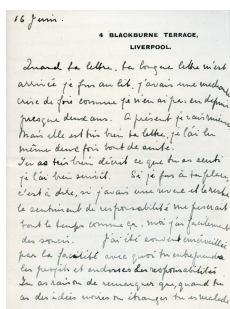 16 Juin.
4 BLACKBURNE TERRACE,
LIVERPOOL.
Quand ta lettre, ta longue lettre m'est
arrivée je fus au lit. J'avais une méchante
crise de foie comme je n'en ai pas eu depuis
presque deux ans. A présent je vais mieux
Mais elle est très bien ta lettre, je l'ai lu
même deux fois tant de suite.
Tu as très bien décrit ce que tu as senti
je l'ai bien suivit. Si je fus à ta place,
c'est à dire, si j'avais une revue et le reste
le sentiment de responsabilité me peserait
tout le temps comme ça, moi j'ai facilement
des soucis. J'ai été souvent émerveillée
par la facilité avec quoi tu entreprends
les projets et endosses des responsabilités.
Tu as raison de remarquer que, quand tu
as des idées noires ou étranges tu es malade